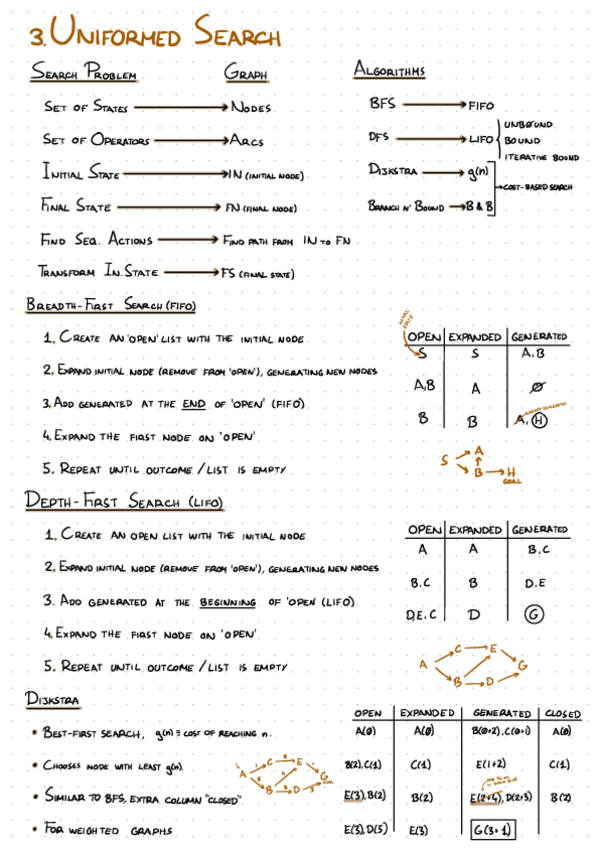 3. UNIFORMED SEARCH
SEARCH PROBLEM GRAPH
SET OF STATES → NODES
SET OF OPERATORS → ARCS
INITIAL STATE → IN (INITIAL NODE)
FINAL STATE → FN (FINAL NODE)
FIND SEQ. ACTIONS → FIND PATH FROM IN TO FN
TRANSFORM IN. STATE → FS (FINAL STATE)
ALGORITHMS
BFS → FIFO
DFS → LIFO
UNBOUND
BOUND
ITERATIVE BOUND
DIJKSTRA → g(n)
BRANCH N' BOUND → B & B
COST-BASED SEARCH
BREADTH-FIRST SEARCH (FIFO)
1. CREATE AN 'OPEN' LIST WITH THE INITIAL NODE
2. EXPAND INITIAL NODE (REMOVE FROM 'OPEN'), GENERATING NEW NODES
3. ADD GENERATED AT THE END OF 'OPEN' (FIFO)
4. EXPAND THE FIRST NODE ON 'OPEN'
5. REPEAT UNTIL OUTCOME / LIST IS EMPTY
OPEN EXPANDED GENERATED
S S A,B
A,B A ∅
B B A, H
S A B H
GOAL
DEPTH-FIRST SEARCH (LIFO)
1. CREATE AN OPEN LIST WITH THE INITIAL NODE
2. EXPAND INITIAL NODE (REMOVE FROM 'OPEN'), GENERATING NEW NODES
3. ADD GENERATED AT THE BEGINNING OF 'OPEN (LIFO)
4. EXPAND THE FIRST NODE ON 'OPEN'
5. REPEAT UNTIL OUTCOME / LIST IS EMPTY
OPEN EXPANDED GENERATED
A A B,C
B,C B D,E
D,E,C D G
A C E B D G
DIJKSTRA
• BEST-FIRST SEARCH, g(n) ≡ COST OF REACHING n.
• CHOOSES NODE WITH LEAST g(n).
• SIMILAR TO BFS, EXTRA COLUMN "CLOSED"
• FOR WEIGHTED GRAPHS
A C E B D G
OPEN EXPANDED GENERATED CLOSED
A(0) A(0) B(0+2), C(0+1) A(0)
B(2), C(1) C(1) E(1+2) C(1)
E(3), B(2) B(2) E(2+4), D(2+3) B(2)
E(3), D(5) E(3) G(3+1)